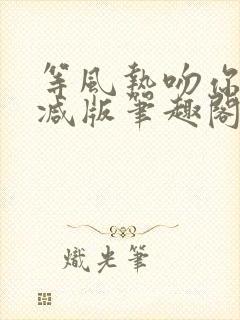 等風熱吻你
减版筆趣閣
熾光筆